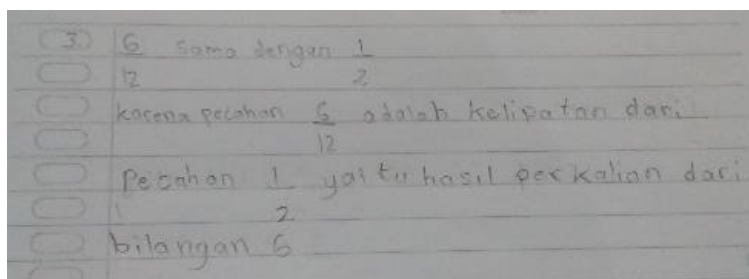 3. 6/12 sama dengan 1/2
karena pecahan 6/12 adalah kelipatan dari
Pecahan 1/2 yaitu hasil perkalian dari
bilangan 6